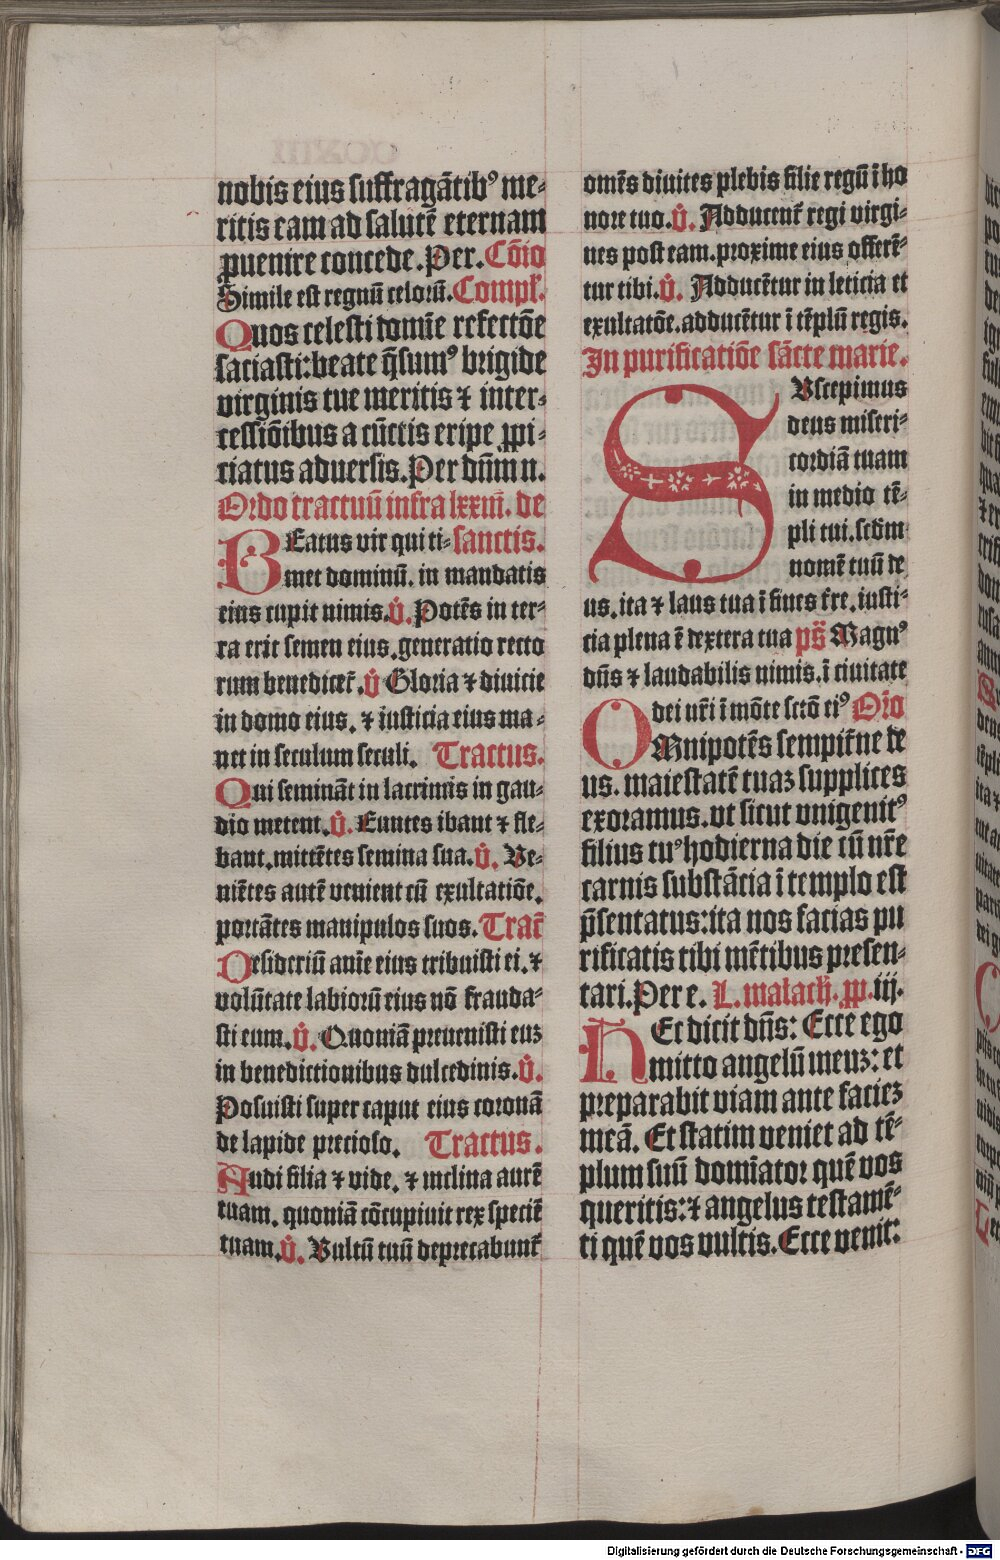 nobis eius suffragātibꝰ me-
ritis eam ad salutē eternam
ꝑuenire concede. Per. Cōio
Simile est regnū celorū. Compl̄.
Quos celesti domīe refectōe
saciasti: beate q̄sumꝰ brigide
virginis tue meritis ⁊ inter-
cessiōibus a cūctis eripe ꝓpi-
ciatus aduersis. Per dn̄m n.
Ordo tractuū infra lxxiii. de
BEatus vir qui ti- sanctis.
met dominū. in mandatis
eius cupit nimis. v̄. Potēs in ter-
ra erit semen eius. generatio recto
rum benedicet̄. v̄ Gloria ⁊ diuicie
in domo eius. ⁊ iusticia eius ma-
net in seculum seculi. Tractus.
Qui semināt in lacrimis in gau-
dio metent. v̄. Euntes ibant ⁊ fle-
bant. mittētes semina sua. v̄. Ve-
niētes autē venient cū exultatiōe.
portātes manipulos suos. Tract̄
Desideriū anīe eius tribuisti ei. ⁊
volūtate labiorū eius nō frauda-
sti eum. v̄. Quoniā preuenisti euꝫ
in benedictionibus dulcedinis. v̄.
Posuisti super caput eius coronā
de lapide precioso. Tractus.
Audi filia ⁊ vide. ⁊ inclina aurē
tuam. quoniā cōcupiuit rex speciē
tuam. v̄. Vultū tuū deprecabunt̄
omēs diuites plebis filie regū ī ho
nore tuo. v̄. Adducent̄ regi virgi-
nes post eam. proxime eius offerē-
tur tibi. v̄. Adducētur in leticia et
exultatōe. adducētur ī tēplū regis.
In purificatiōe sācte marie.
SVscepimus
deus miseri-
cordiā tuam
in medio tē-
pli tui. scd̄m
nomē tuū de
us. ita ⁊ laus tua ī fines t̄re. iusti-
cia plena ē dextera tua ps̄ Magnꝰ
dn̄s ⁊ laudabilis nimis. ī ciuitate
dei nr̄i ī mōte sctō eiꝰ Orō
OMnipotēs sempit̄ne de
us. maiestatē tuaꝫ supplices
exoramus. vt sicut vnigenitꝰ
filius tuꝰ hodierna die cū nr̄e
carnis substācia ī templo est
p̄sentatus: ita nos facias pu
rificatis tibi mētibus presen-
tari. Per e. L. malach̄. ꝓp. iij.
HEc dicit dn̄s: Ecce ego
mitto angelū meuꝫ: et
preparabit viam ante facieꝫ
meā. Et statim veniet ad tē-
plum suū domīator quē vos
queritis: ⁊ angelus testamē-
ti quē vos vultis. Ecce venit:
Digitalisierung gefördert durch die Deutsche Forschungsgemeinschaft - DFG